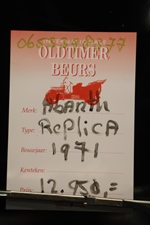 OLDTIMER
BEURS
Merk: Abarth
Type: Replica
Bouwjaar: 1971
Kenteken:
Prijs: 12.950,=